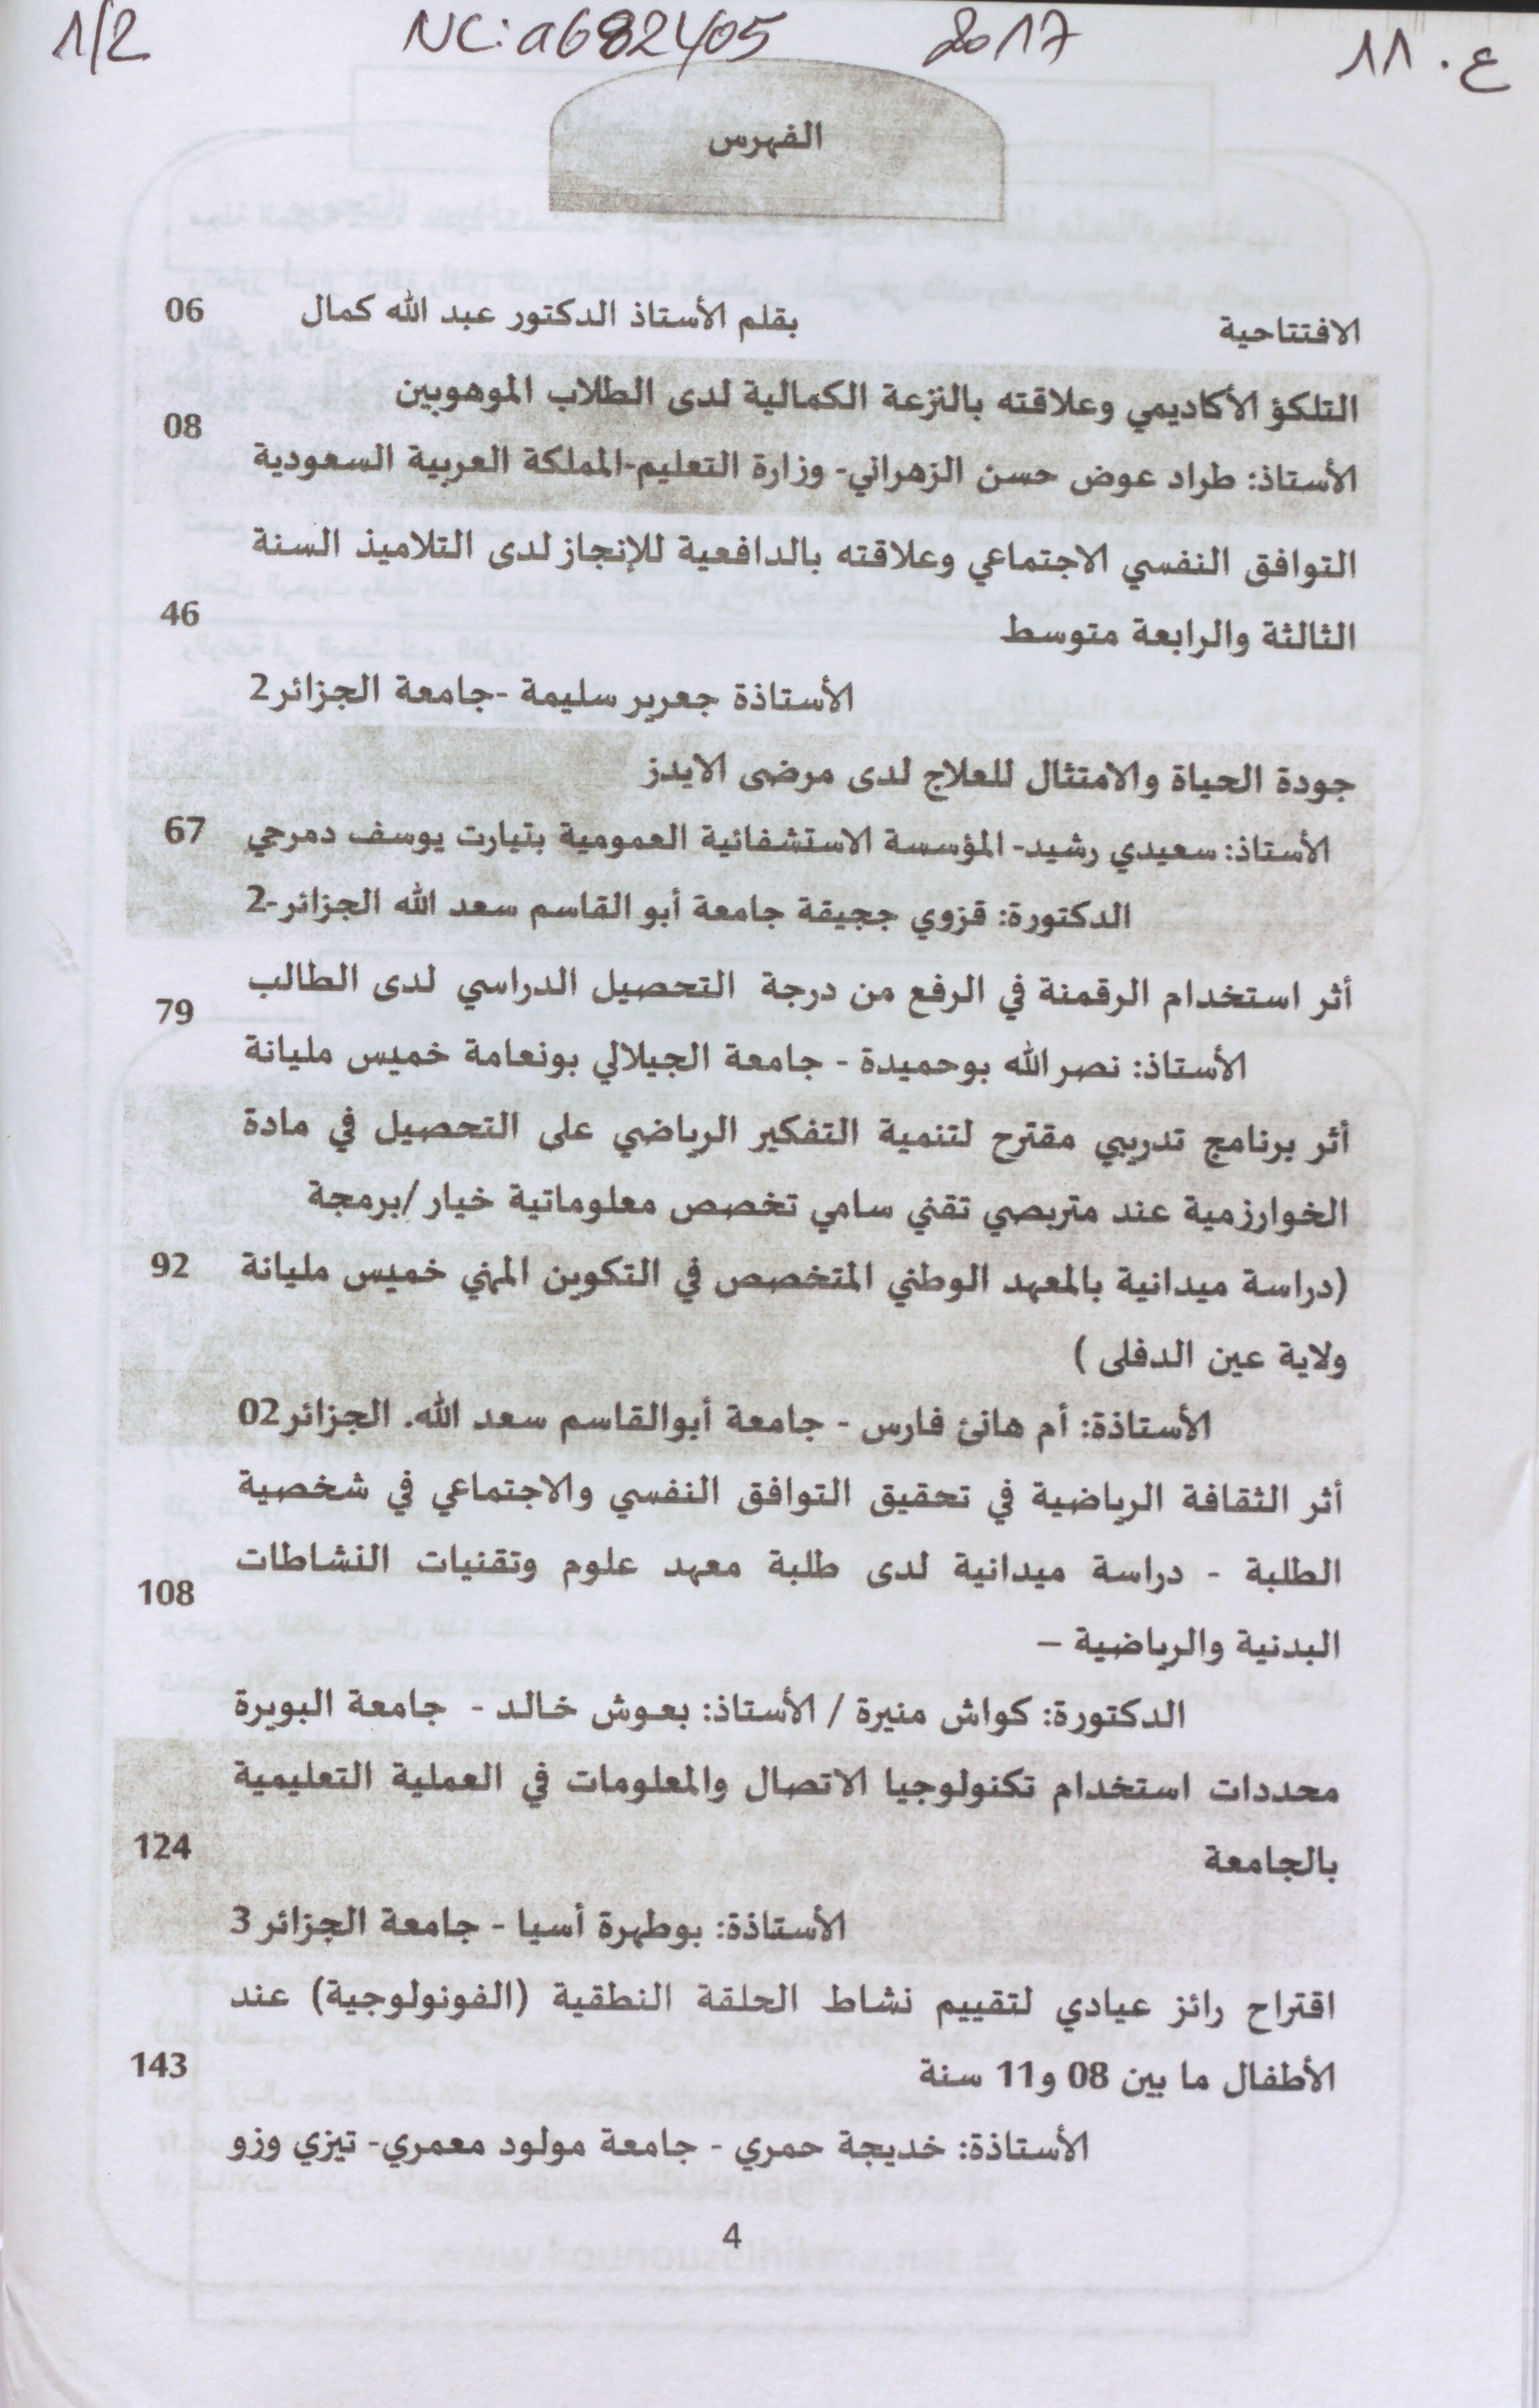 1/2 NC: a682405 2017 ع. 11
الفهرس
الافتتاحية بقلم الأستاذ الدكتور عبد الله كمال 06
التلكؤ الأكاديمي وعلاقته بالنزعة الكمالية لدى الطلاب الموهوبين
08
الأستاذ: طراد عوض حسن الزهراني- وزارة التعليم-المملكة العربية السعودية
التوافق النفسي الاجتماعي وعلاقته بالدافعية للإنجاز لدى التلاميذ السنة
الثالثة والرابعة متوسط 46
الأستاذة جعرير سليمة -جامعة الجزائر2
جودة الحياة والامتثال للعلاج لدى مرضى الايدز
الأستاذ: سعيدي رشيد- المؤسسة الاستشفائية العمومية بتيارت يوسف دمرجي 67
الدكتورة: قزوي ججيقة جامعة أبو القاسم سعد الله الجزائر-2
أثر استخدام الرقمنة في الرفع من درجة التحصيل الدراسي لدى الطالب
79
الأستاذ: نصر الله بوحميدة - جامعة الجيلالي بونعامة خميس مليانة
أثر برنامج تدريبي مقترح لتنمية التفكير الرياضي على التحصيل في مادة
الخوارزمية عند متربصي تقني سامي تخصص معلوماتية خيار /برمجة
(دراسة ميدانية بالمعهد الوطني المتخصص في التكوين المهني خميس مليانة 92
ولاية عين الدفلى )
الأستاذة: أم هانئ فارس - جامعة أبوالقاسم سعد الله. الجزائر02
أثر الثقافة الرياضية في تحقيق التوافق النفسي والاجتماعي في شخصية
الطلبة - دراسة ميدانية لدى طلبة معهد علوم وتقنيات النشاطات
108
البدنية والرياضية –
الدكتورة: كواش منيرة / الأستاذ: بعوش خالد - جامعة البويرة
محددات استخدام تكنولوجيا الاتصال والمعلومات في العملية التعليمية
بالجامعة 124
الأستاذة: بوطهرة أسيا - جامعة الجزائر 3
اقتراح رائز عيادي لتقييم نشاط الحلقة النطقية (الفونولوجية) عند
الأطفال ما بين 08 و11 سنة 143
الأستاذة: خديجة حمري - جامعة مولود معمري- تيزي وزو
4